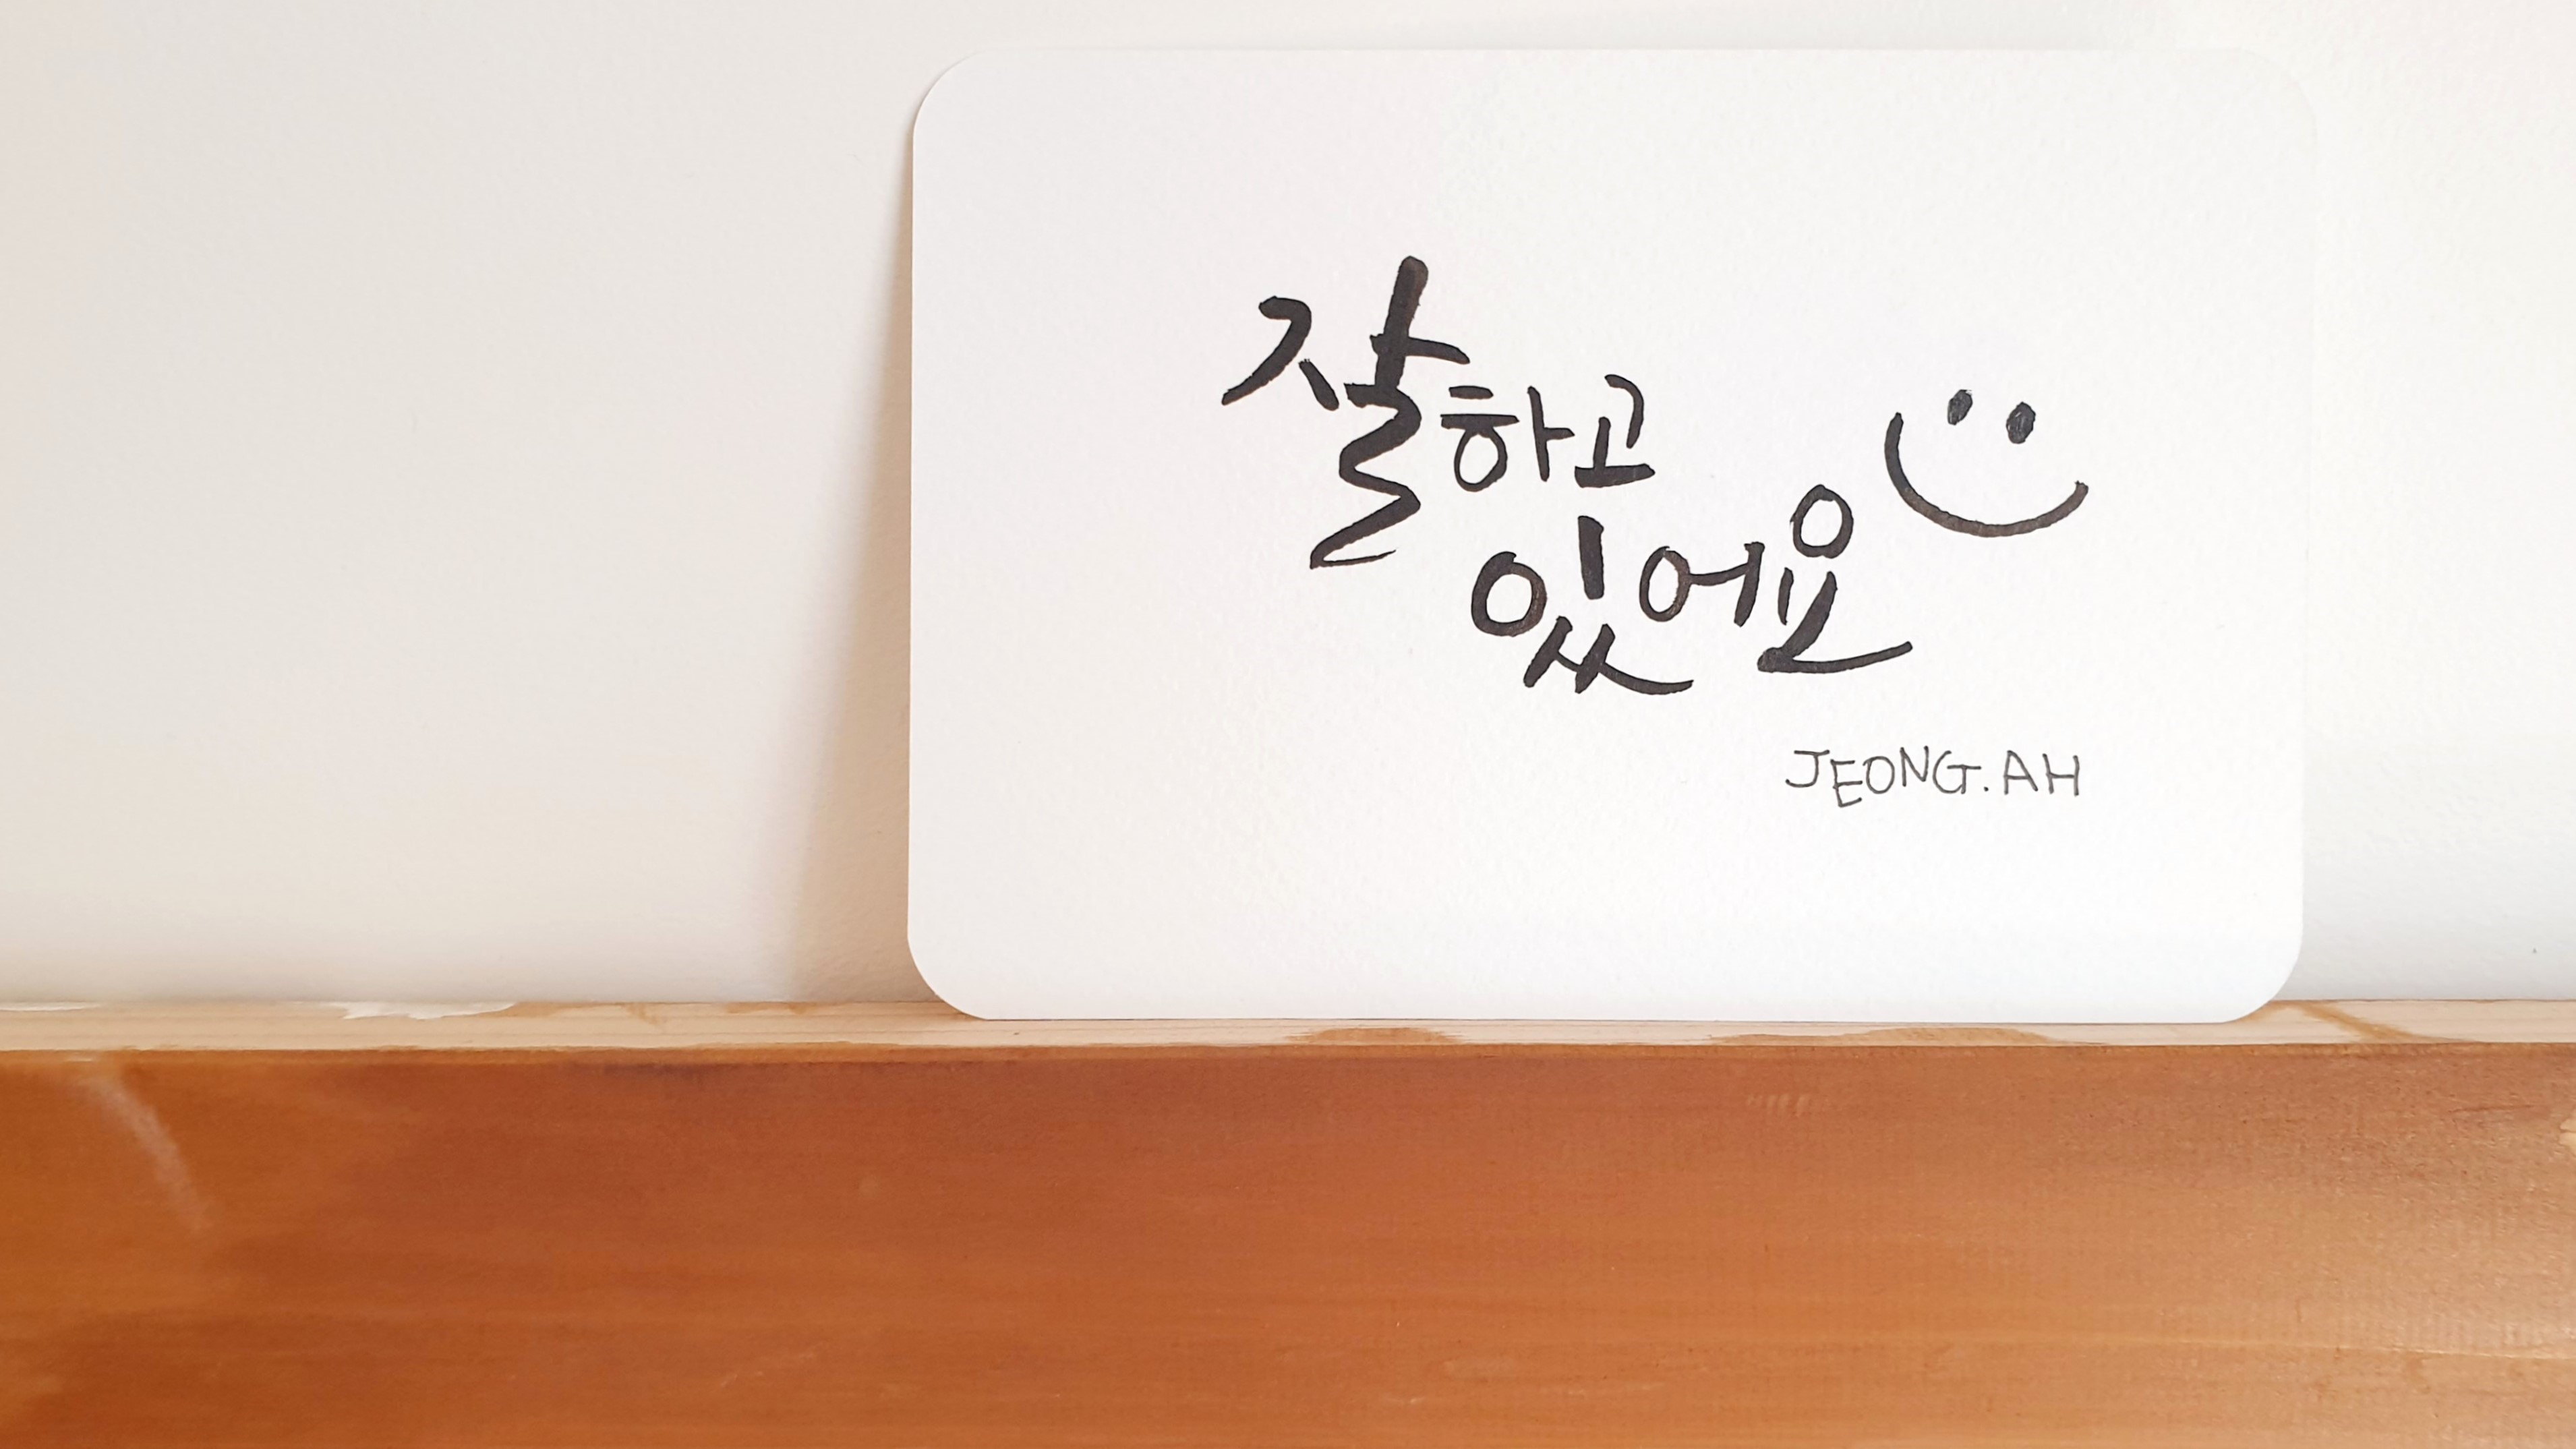 잘하고
있어요
JEONG.AH